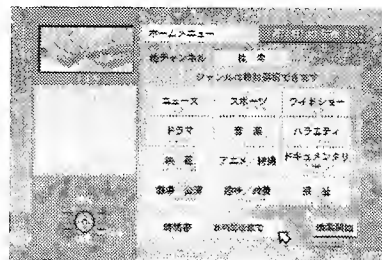 ホームメニュー
検索
ジャンルは複数選択できます
ニュース スポーツ ワイドショー
ドラマ 音楽 バラエティ
映画 アニメ/特撮 ドキュメンタリ
劇場/公演 趣味/教育 福祉
時間帯
検索開始